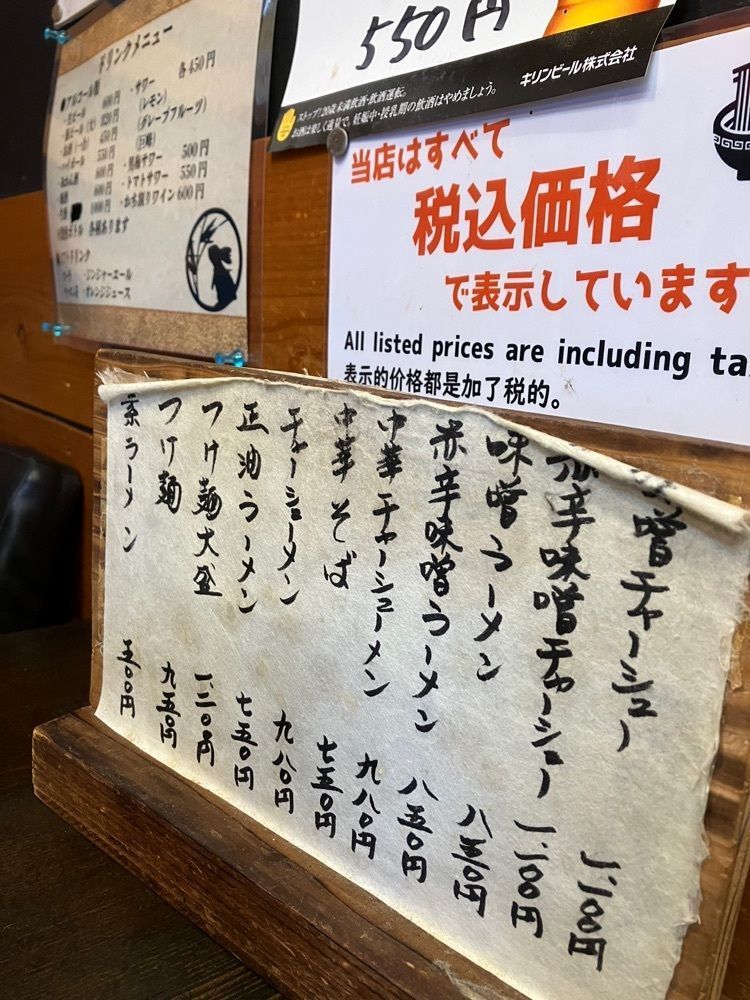 ドリンクメニュー
各450円
・サワー
(レモン)
(グレープフルーツ)
(巨峰)
500円
・トマトサワー 550円
600円
各種あります
・ジンジャーエール
・オレンジジュース
550円
ストップ!20歳未満飲酒・飲酒運転。
お酒は楽しく適量で。妊娠中・授乳期の飲酒はやめましょう。
キリンビール株式会社
当店はすべて
税込価格
で表示しています
All listed prices are including ta
表示的价格都是加了税的。
噌チャーシュー 一、一〇〇円
赤辛味噌チャーシュー 一、一〇〇円
味噌ラーメン 八五〇円
赤辛味噌ラーメン 八五〇円
中華チャーシューメン 九八〇円
中華そば 七五〇円
チャーシューメン 九八〇円
正油ラーメン 七五〇円
つけ麺大盛 一、一二〇円
つけ麺 九五〇円
素ラーメン 五〇〇円